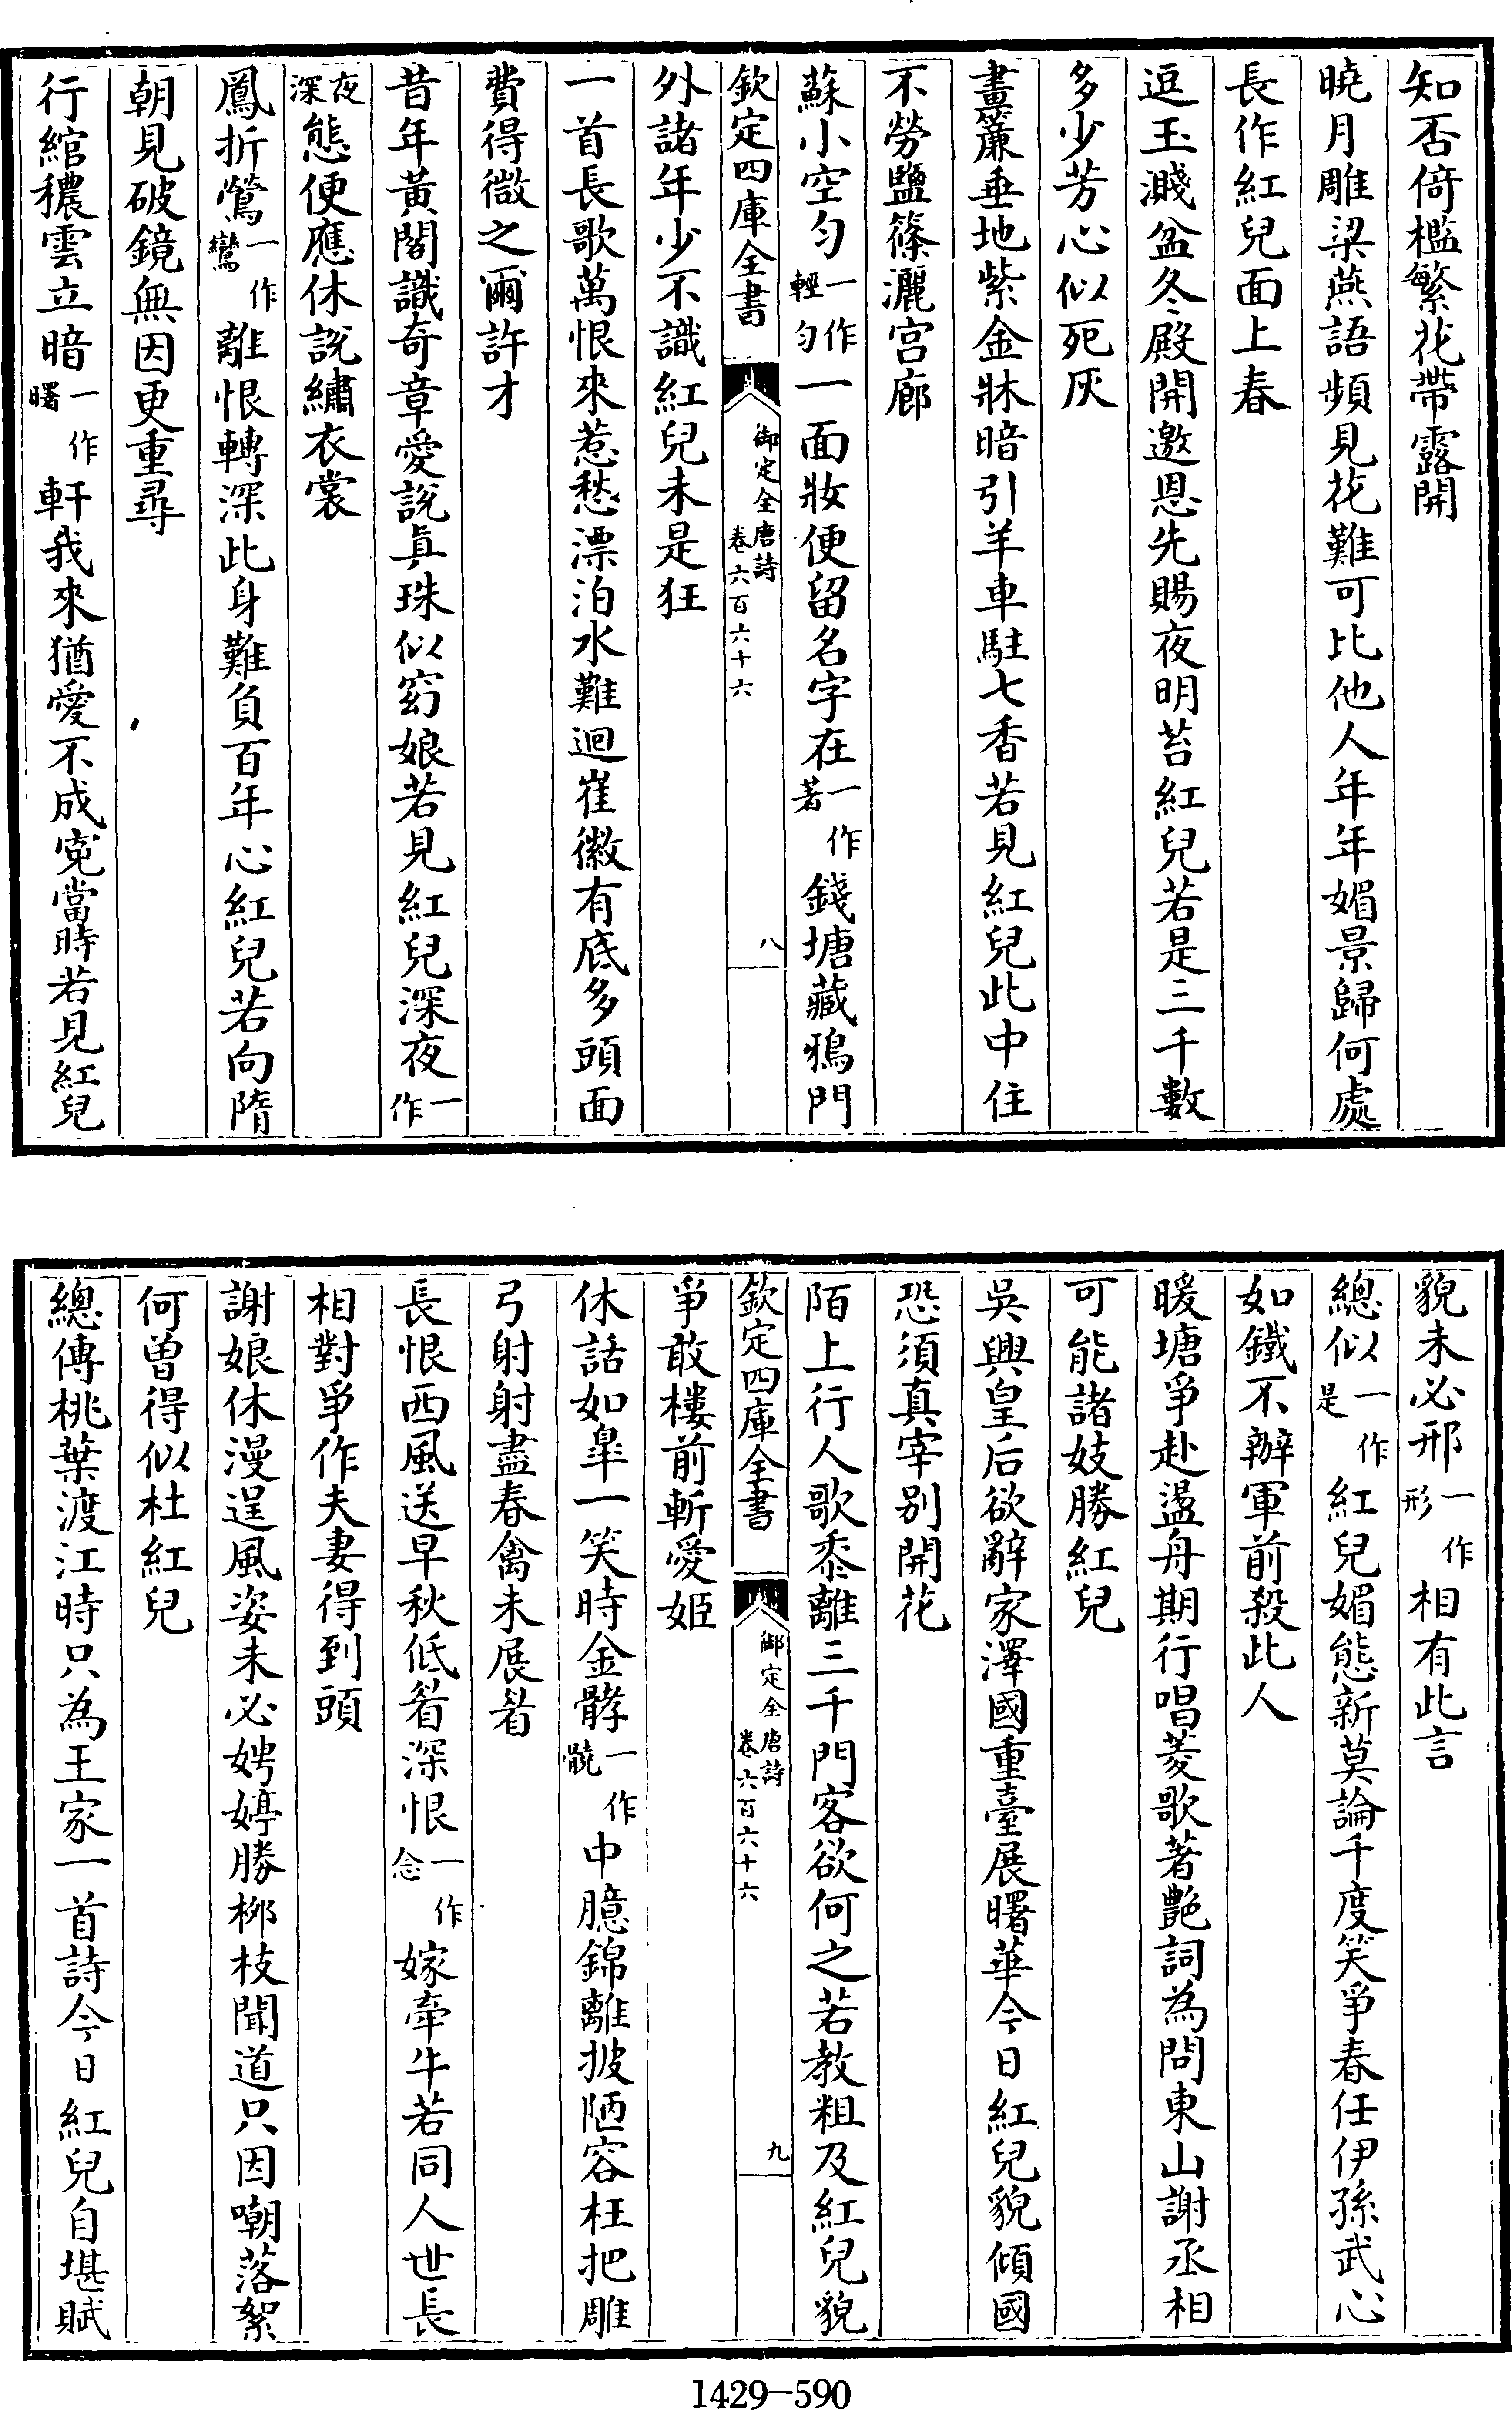 知否倚檻繁花帶露開
曉月雕梁燕語頻見花難可比他人年年媚景歸何處
長作紅兒面上春
逗玉濺盆冬殿開邀恩先賜夜明苔紅兒若是三千數
多少芳心似死灰
畫簾垂地紫金牀暗引羊車駐七香若見紅兒此中住
不勞鹽篠灑宫廊
蘇小空勻一作輕勻一面妝便留名字在一作著錢塘藏鴉門
欽定四庫全書 御定全唐詩 卷六百六十六 八
外諸年少不識紅兒未是狂
一首長歌萬恨來惹愁漂泊水難迴崔徽有底多頭面
費得微之爾許才
昔年黃閣識奇章愛說真珠似窈娘若見紅兒深夜一作
夜深態便應休說繡衣裳
鳳折鶯一作鸞離恨轉深此身難負百年心紅兒若向隋
朝見破鏡無因更重尋
行綰穠雲立暗一作曙軒我來猶愛不成寃當時若見紅兒
貌未必邢一作形相有此言
總似一作是紅兒媚態新莫論千度笑爭春任伊孫武心
如鐵不辦軍前殺此人
暖塘爭赴盪舟期行唱菱歌著艷詞為問東山謝丞相
可能諸妓勝紅兒
吳興皇后欲辭家澤國重臺展曙華今日紅兒貌傾國
恐須真宰别開花
陌上行人歌黍離三千門客欲何之若教粗及紅兒貌
欽定四庫全書 御定全唐詩 卷六百六十六 九
爭敢樓前斬愛姬
休話如臯一笑時金髇一作髐中臆錦離披陋容枉把雕
弓射射盡春禽未展眉
長恨西風送早秋低眉深恨一作念嫁牽牛若同人世長
相對爭作夫妻得到頭
謝娘休漫逞風姿未必娉婷勝柳枝聞道只因嘲落絮
何曾得似杜紅兒
總傳桃葉渡江時只為王家一首詩今日紅兒自堪賦
1429-590